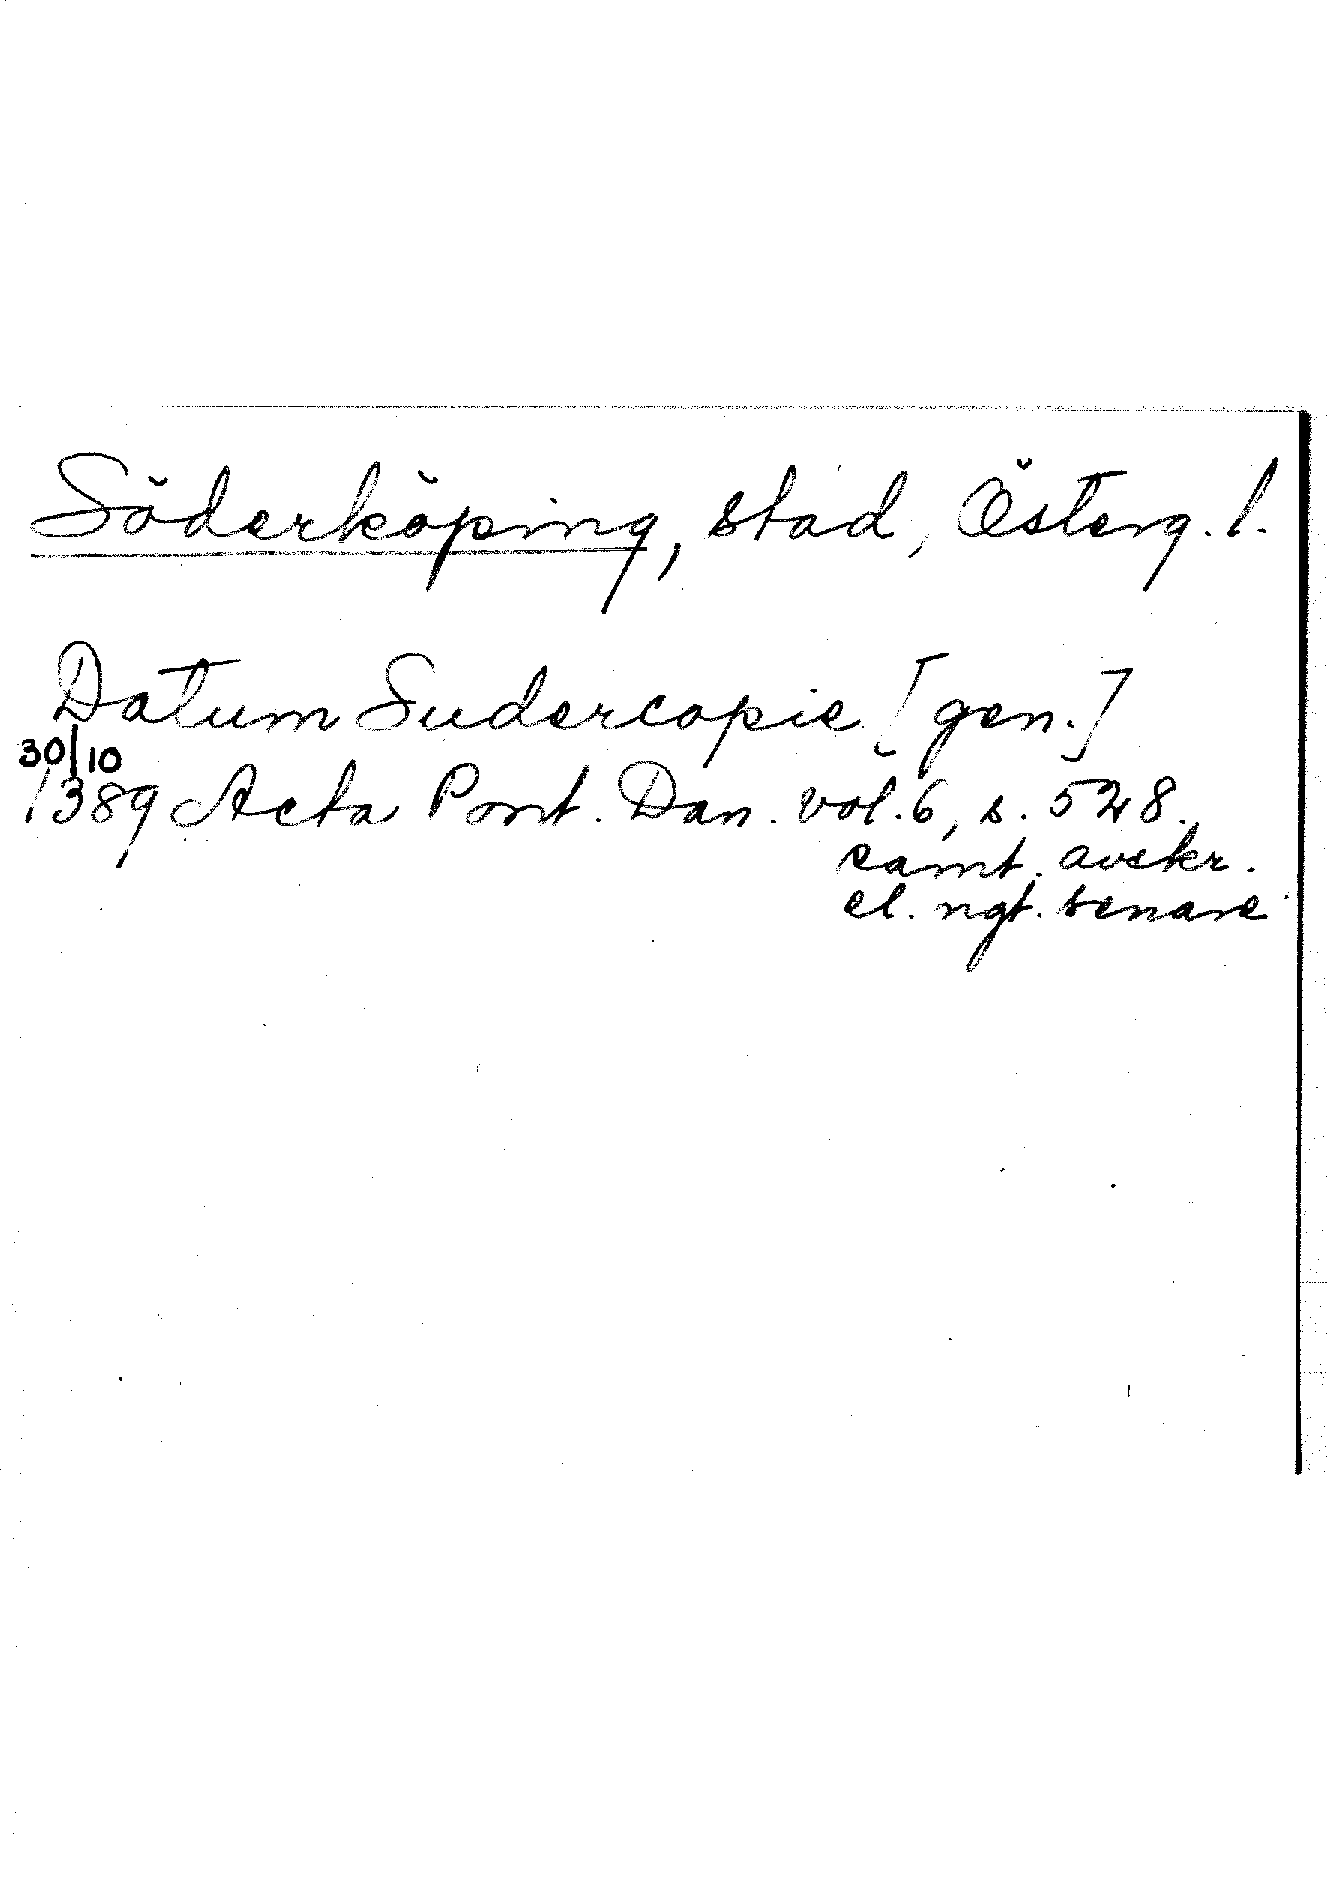 Söderköping, stad, Österg. l.
Datum Sudercopie [gen.]
30/10
1389 Acta Pont. Dan. vol. 6, s. 528.
samt. avskr.
el. ngt. senare